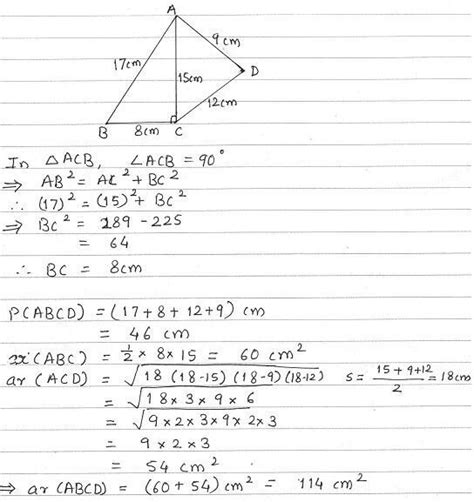 A
9cm
17cm
15cm
D
12cm
B
8cm
C
In △ACB, ∠ACB = 90°
⇒ AB² = AC² + BC²
∴ (17)² = (15)² + BC²
⇒ BC² = 289 - 225
= 64
∴ BC = 8cm
P(ABCD) = (17+8+12+9) cm
= 46 cm
ar(ABC) = ½ × 8 × 15 = 60 cm²
ar(ACD) = √18(18-15)(18-9)(18-12) S = (15+9+12)/2 = 18cm
= √18×3×9×6
= √9×2×3×9×2×3
= 9×2×3
= 54 cm²
⇒ ar(ABCD) = (60+54) cm² = 114 cm²